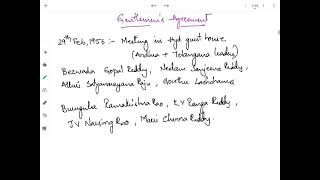 Gentlemen's Agreement
29th Feb, 1956 :- Meeting in Hyd guest house
(Andhra + Telangana leaders)
Bezwada Gopal Reddy, Neelam Sanjeeva Reddy,
Alluri Satyanarayana Raju, Gouthu Latchanna
Burugula Ramakrishna Rao, K V Ranga Reddy,
J V Narsing Rao, Marri Chenna Reddy.